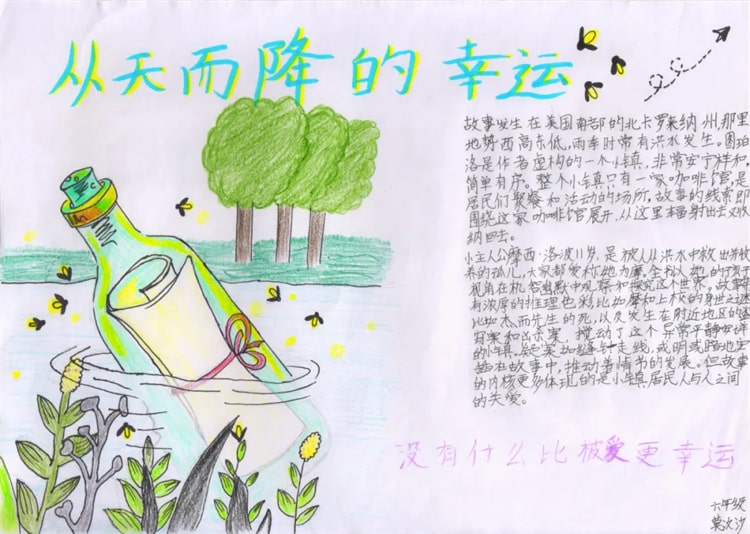 从天而降的幸运
故事发生在美国南部的北卡罗莱纳州,那里
地势西高东低,雨季时常有洪水发生。图珀
洛是作者虚构的一个小镇,非常安宁祥和,
简单有序。整个小镇只有一家咖啡馆,是
居民们聚餐和活动的场所。故事的线索即
围绕这家咖啡馆展开,从这里辐射出去又收
纳回去。
小主人公摩西·洛波11岁,是被人从洪水中救出并收
养的孤儿,大家都爱称她为摩,全松以她的孩子
视角在机智幽默中观察和探究这个世界。故事
有浓厚的推理色彩比如摩和上校的身世之谜
比如杰而先生的死,以及发生在附近地区的
案和凶杀案,搅动了这个异常平静安详
的小镇,疑案如缝针走线,或明或暗地
在故事中,推动着情节的发展。但故事
的内核更多体现的是小镇居民人与人之间
的关爱。
没有什么比被爱更幸运
六年级
莫汝汐